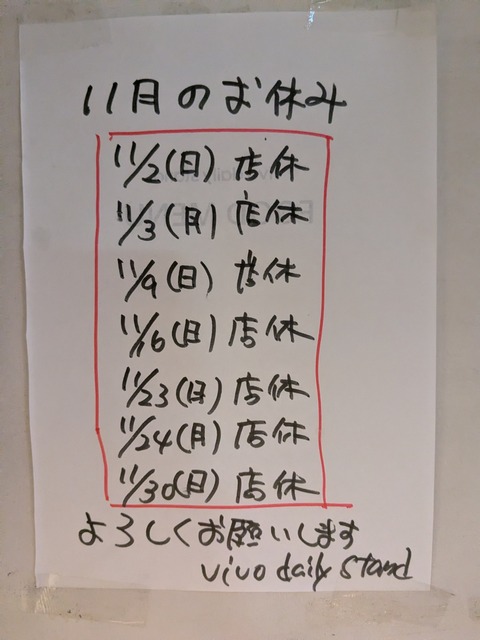 11月のお休み
11/2(日) 店休
11/3(月) 店休
11/9(日) 店休
11/16(日) 店休
11/23(日) 店休
11/24(月) 店休
11/30(日) 店休
よろしくお願いします
vivo daily stand